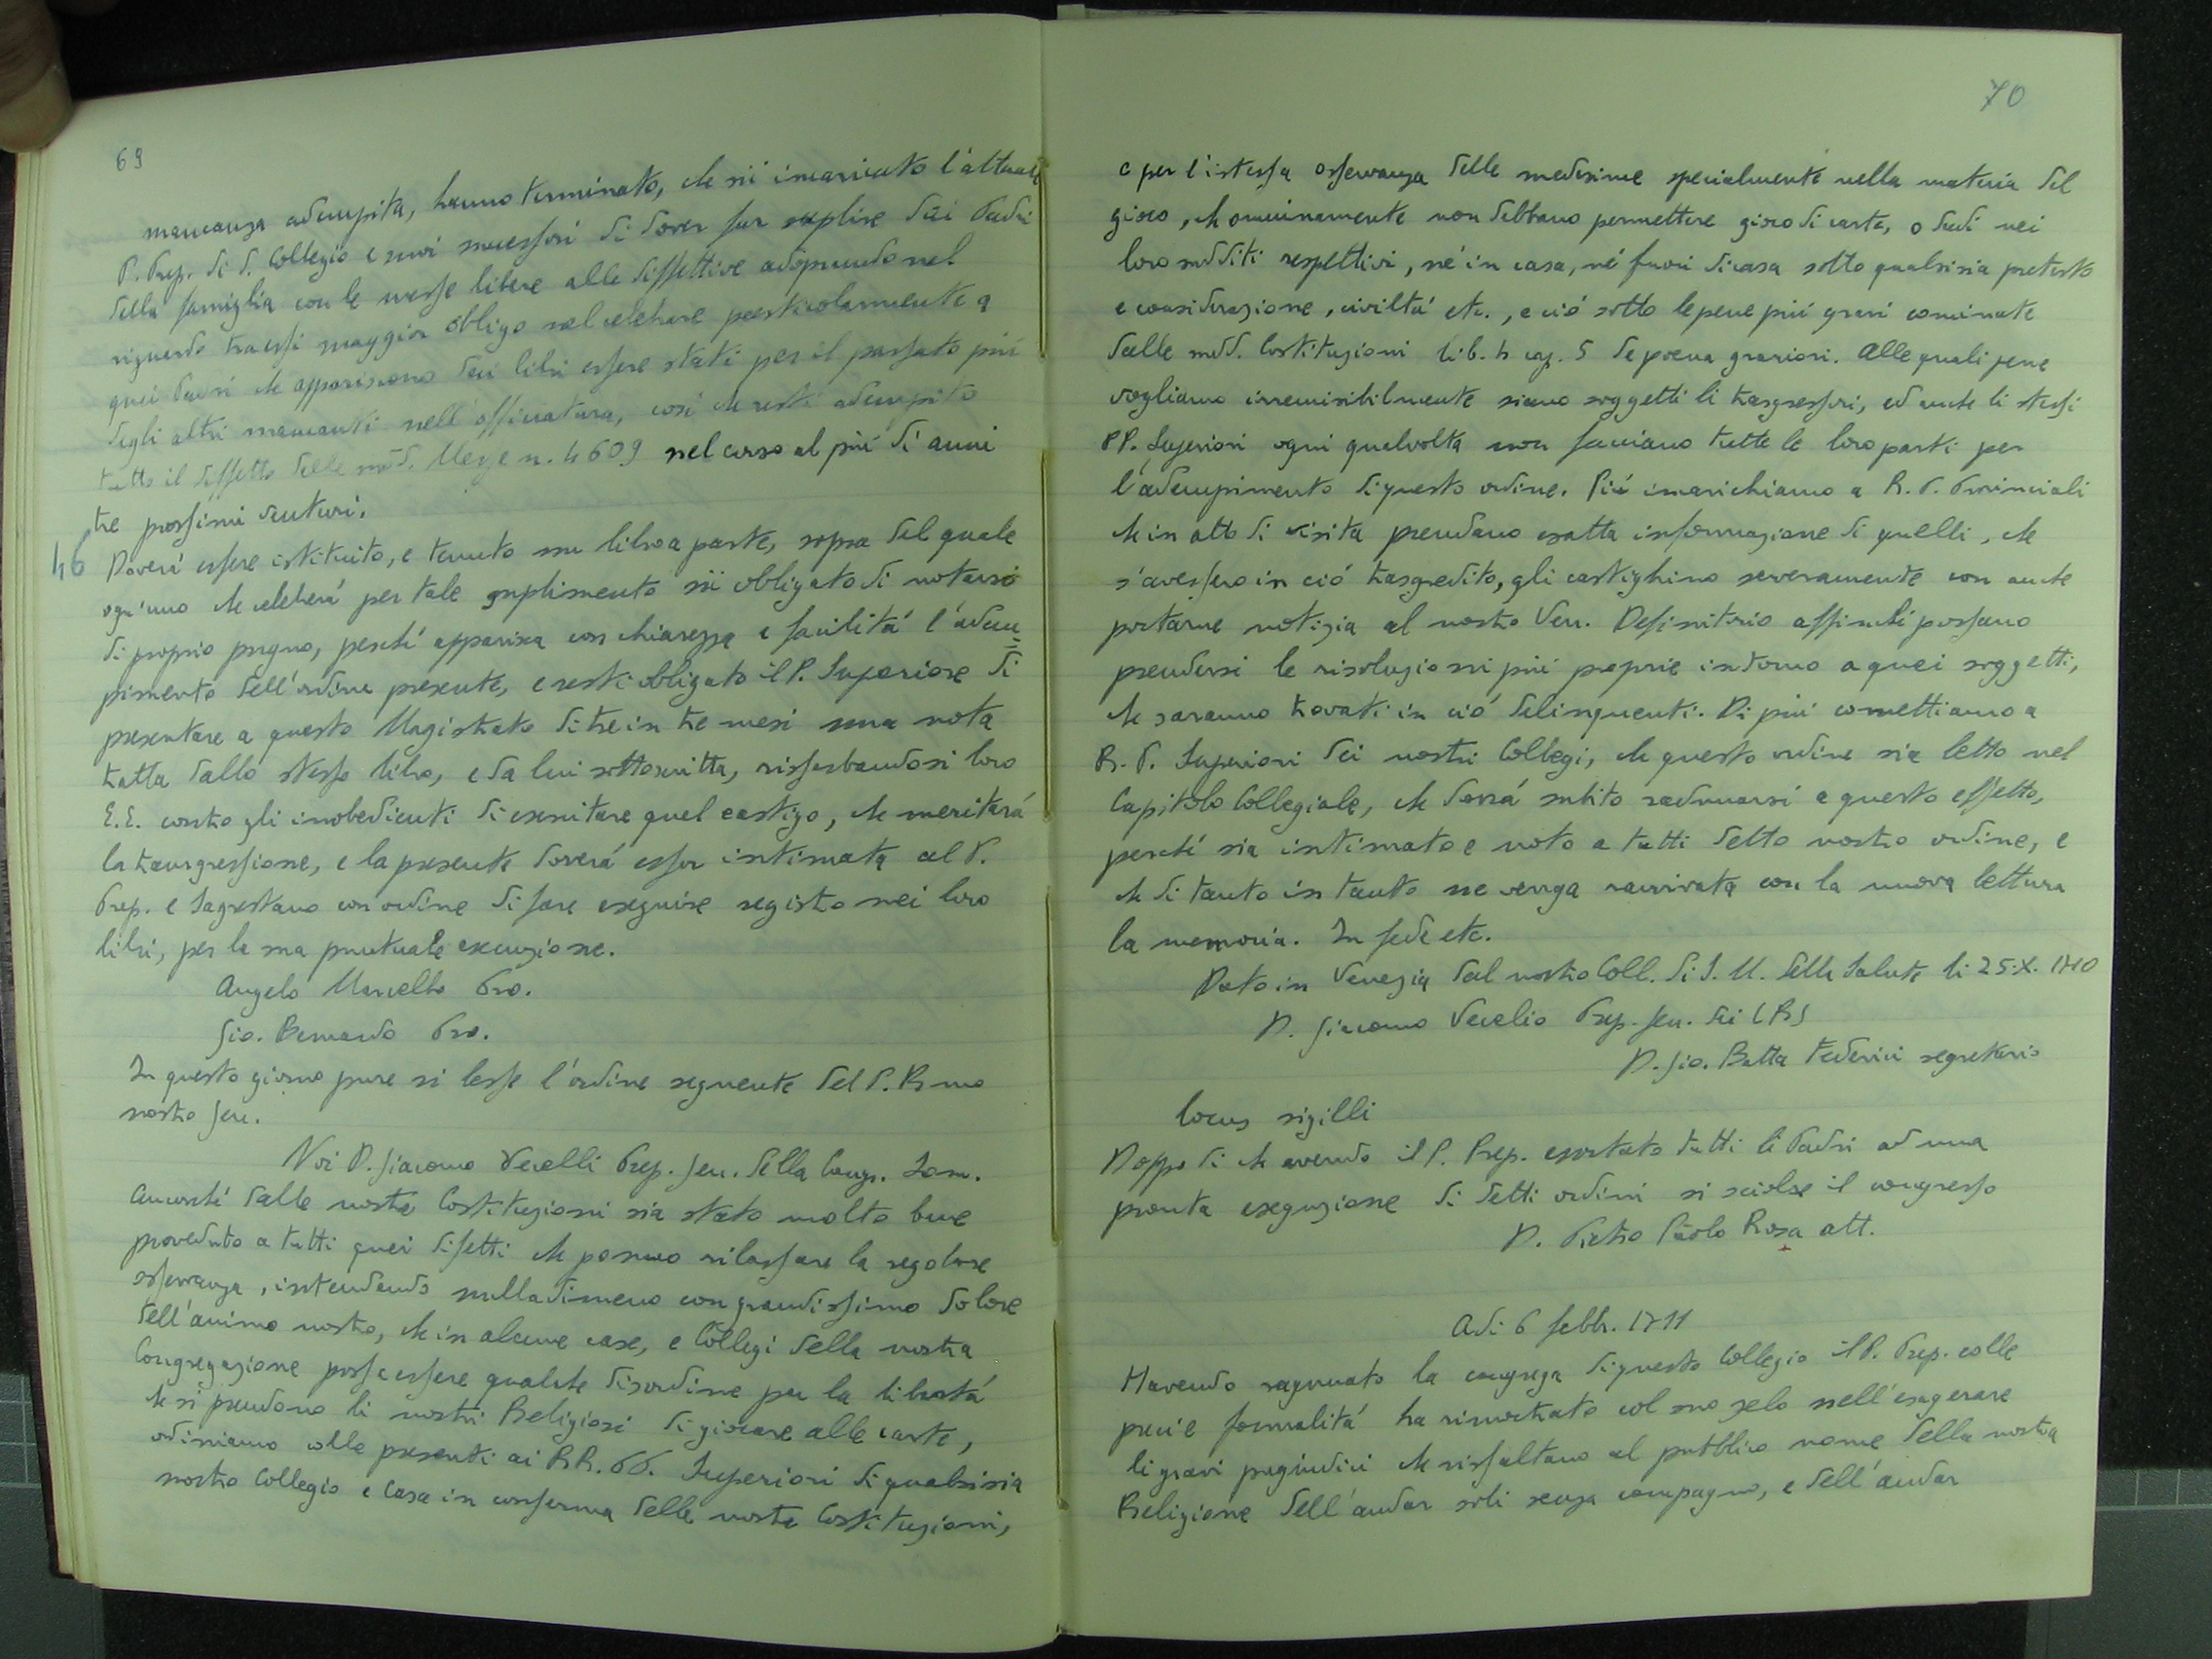 69
mancanza adempita, hanno terminato, che sii incaricato l'attuale
P. Prep. di d. Collegio e suoi successori di dover far suplire dai Padri
della famiglia con le messe libere alle diffettive adoprando nel
riguardo tra essi maggior obligo nel celebrare particolarmente a
quei Padri che appariscono dai libri essere stati per il passato più
degli altri mancanti nell'officiatura, così che resti adempito
tutto il diffetto delle md. Messe n. 4609 nel corso al più di anni
tre prossimi venturi.
46 Doverà essere istituito, e tenuto un libro a parte, sopra del quale
ogn'uno che celebrerà per tale suplimento sii obbligato di notarsi
di proprio pugno, perché apparisca con chiarezza e facilità l'adem=
pimento dell'ordine presente, e resti obligato il P. Superiore di
presentare a questo Magistrato di tre in tre mesi una nota
tratta dallo stesso libro, e da lui sottoscritta, risserbandosi loro
E.E. contro gli inobedienti di esercitare quel castigo, che meritarà
la transgressione, e la presente doverà esser intimata al P.
Prep. e Sagrestano con ordine di fare eseguire registro nei loro
libri, per la sua puntuale execuzione.
Angelo Marcello Pro.
Gio. Bernardo Pro.
In questo giorno pure si lesse l'ordine seguente del P. Rmo
nostro Gen.
Noi D. Giacomo Vecelli Prep. Gen. della Congr. Som.
Ancorché dalle nostre Costituzioni sia stato molto bene
proveduto a tutti quei difetti che possono rilassare la regolare
osservanza, intendendo nulladimeno con grandissimo dolore
dell'animo nostro, che in alcune case, e Collegi della nostra
Congregazione possa essere qualche disordine per la libertà
che si prendono li nostri Religiosi di giocare alle carte,
ordiniamo colle presenti ai RR. PP. Superiori di qualsisia
nostro Collegio e Casa in conferma delle nostre Costituzioni,
70
e per l'istessa osservanza delle medesime specialmente nella materia del
gioco, che onninamente non debbano permettere gioco di carte, o dadi nei
loro sudditi respettivi, né in casa, né fuori di casa sotto qualsisia pretesto
e considerazione, civiltà etc., e ciò sotto le pene più gravi cominate
dalle sudd. Costituzioni lib. 4 cap. 5 de poena graviori. Alle quali pene
vogliamo irremisibilmente siano soggetti li trasgressori, ed anche li stessi
PP. Superiori ogni qualvolta non facciano tutte le loro parti per
l'adempimento di questo ordine. Più incarichiamo a R. P. Provinciali
che in atto di visita prendano esatta informazione di quelli, che
s'avessero in ciò trasgredito, gli castighino severamente con anche
portarne notizia al nostro Ven. Definitorio affinché possano
prendersi le risoluzioni più proprie intorno a quei soggetti,
che saranno trovati in ciò delinquenti. Di più comettiamo a
R. P. Superiori dei nostri Collegi, che questo ordine sia letto nel
Capitolo Collegiale, che dovrà subito radunarsi a questo effetto,
perché sia intimato e noto a tutti detto nostro ordine, e
che di tanto in tanto ne venga ravvivata con la nuova lettura
la memoria. In fede etc.
Dato in Venezia dal nostro Coll. di S. M. della Salute li 25.X. 1710
D. Giacomo Vecelio Prep. Gen. dei CRS
D. Gio. Batta Federici segretario
locus sigilli
Doppo di che avendo il P. Prep. esortato tutti li Padri ad una
pronta esequzione di detti ordini si sciolse il congresso
D. Pietro Paolo Rosa att.
Adi 6 febbr. 1711
Havendo ragunato la congrega di questo Collegio il P. Prep. colle
precie formalità ha rimostrato col suo zelo nell'esagerare
li gravi pregiudici che risaltano al pubblico nome della nostra
Religione dell'andar soli senza compagno, e dell'andar